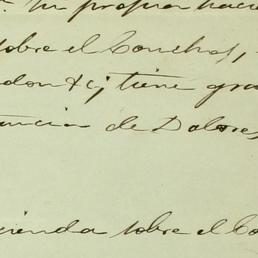 su propia haci
sobre el Conchos,
don &c; tiene gra
tancia de Dolores
cienda sobre el Co